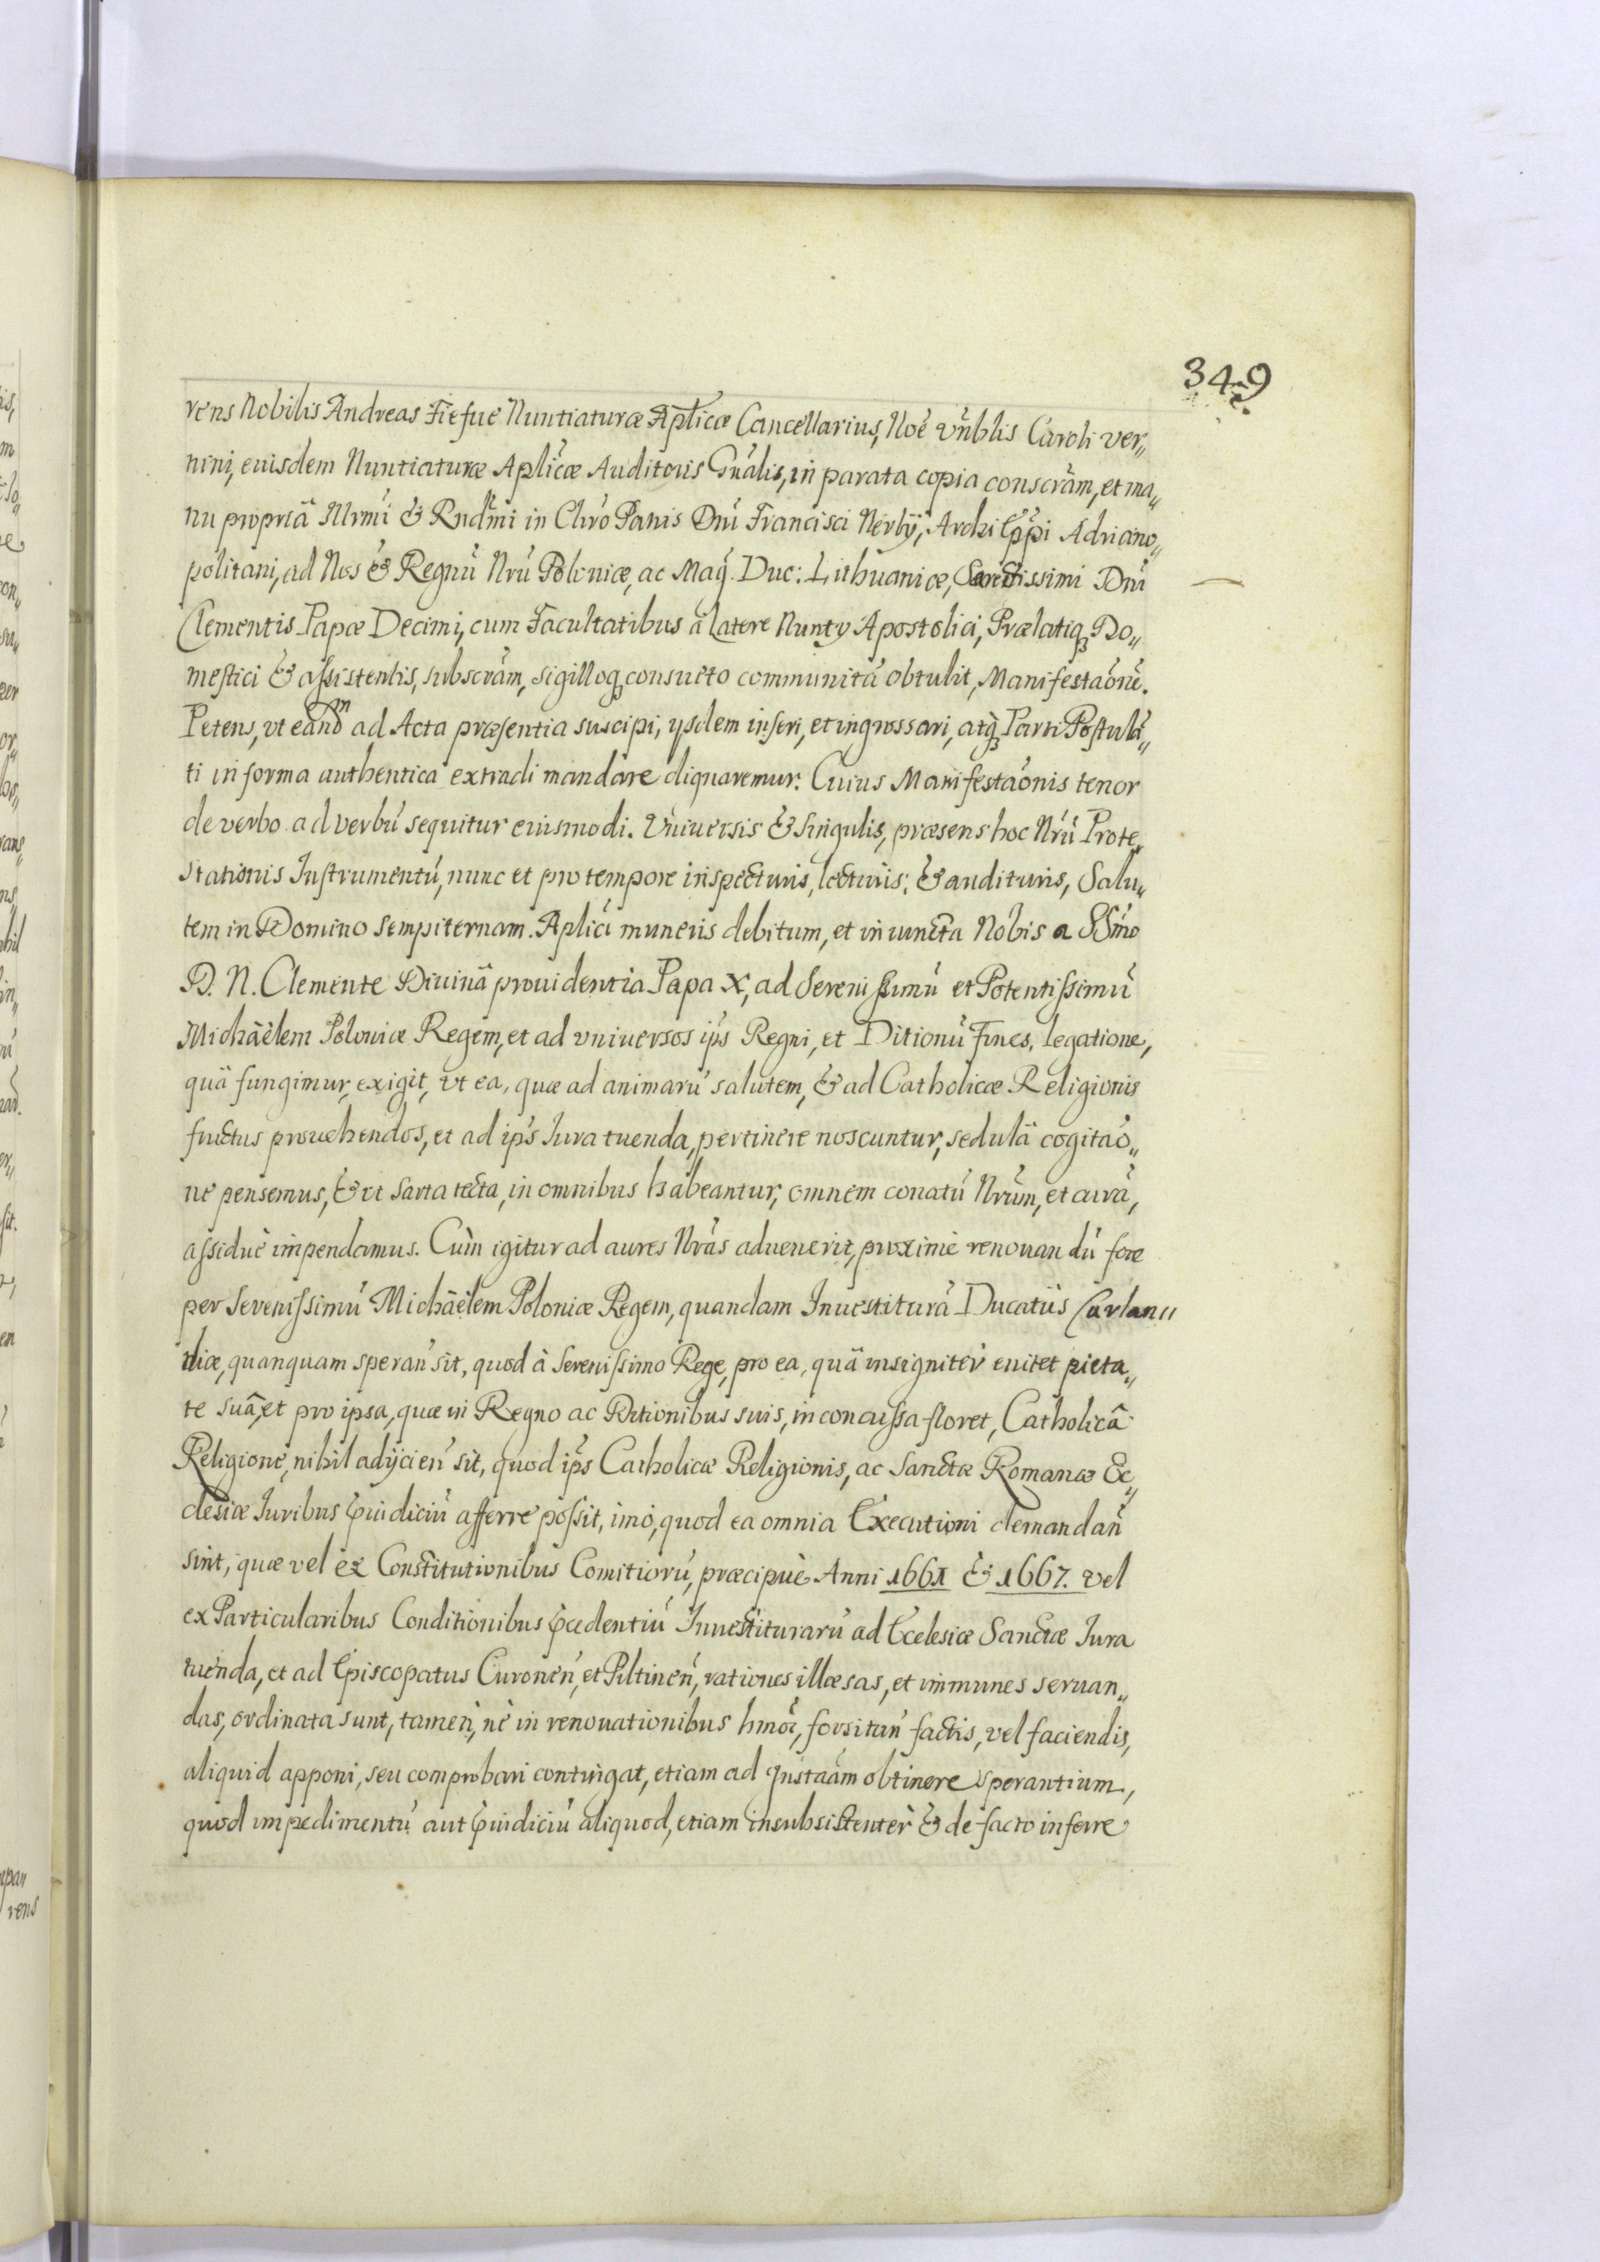 349
rens Nobilis Andreas Fiefue Nuntiaturæ Aplicæ Cancellarius, Noe vnblis Caroli ver„
nini, euisdem Nuntiaturæ Aplicæ Auditoris Gnalis, in parata copia conscram, et ma„
nu propria Illrmi & Rndmi in Chro Panis Dni Francisci Nerlij, Archi Eppi Adriano„
politani, ad Nos & Regnu Nru Poloniæ, ac Mag. Duc: Lithuaniæ, Sanctissimi Dni
Clementis Papæ Decimi, cum Facultatibus à Latere Nuntij Apostolici, Prælatiq; Do„
mestici & assistentis, subscram, sigilloq; consueto communitâ obtulit, Manifestaone.
Petens, vt eandm ad Acta præsentia suscipi, ijsdem inseri, et ingrossari, atq; Parti Postulã„
ti in forma authentica extradi mandare dignaremur. Cuius Manifestaonis tenor
de verbo ad verbu sequitur eiusmodi. Vniuersis & Singulis, præsens hoc Nru Prote„
stationis Instrumentu, nunc et pro tempore inspecturis, lecturis, & audituris, Salu„
tem in Domino sempiternam. Aplici muneris debitum, et iniuncta Nobis a SSmo
D. N. Clemente Diuinâ prouidentia Papa X, ad Serenissimu et Potentissimu
Michäelem Poloniæ Regem, et ad vniuersos ips Regni, et Ditionu Fines, legatione,
quâ fungimur, exigit, vt ea, quæ ad animaru salutem, & ad Catholicæ Religionis
fructus prouehendos, et ad ips Iura tuenda, pertinere noscuntur, sedulâ cogitao„
ne pensemus, & vt sarta tecta, in omnibus habeantur, omnem conatu Nrum, et curâ,
assiduè impendamus. Cùm igitur ad aures Nras aduenerit, proximè renouandu fore
per Serenissimu Michäelem Poloniæ Regem, quandam Inuestiturâ Ducatûs Curlan„
diæ, quanquam speran sit, quod à Serenissimo Rege, pro ea, quâ insigniter enitet pieta„
te suâ, et pro ipsa, quæ in Regno ac Ditionibus suis, inconcussa floret, Catholicâ
Religione, nihil adijcien sit, quod ips Catholicæ Religionis, ac Sanctæ Romanæ Ec„
clesiæ Iuribus piudiciu afferre possit, imò, quod ea omnia Executioni demandan
sint, quæ vel ex Constitutionibus Comitioru, præcipuè Anni 1661 & 1667. vel
ex Particularibus Conditionibus pcedentiu Inuestituraru ad Ecclesiæ Sanctæ Iura
tuenda, et ad Episcopatus Curonen, et Piltinen, rationes illæsas, et immunes seruan„
das, ordinata sunt, tamen, ne in renouationibus hmoi, forsitan factis, vel faciendis,
aliquid apponi, seu comprobari contingat, etiam ad Instaam obtinere sperantium,
quod impedimentu aut piudiciu aliquod, etiam insubsistenter & de facto inferre